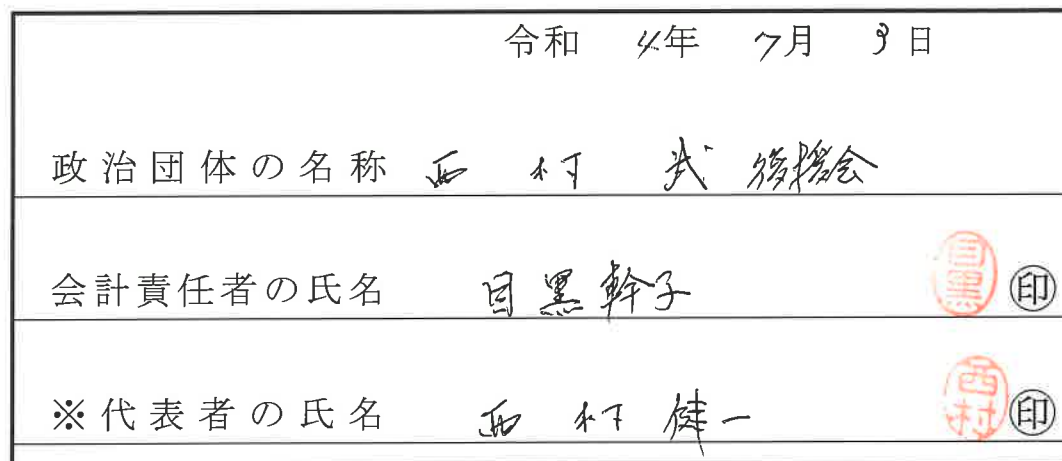 令和 4年 7月 3日
政治団体の名称 西村 武 後援会
会計責任者の氏名 目黒幹子 目黒 ㊞
※代表者の氏名 西村健一 西村 ㊞